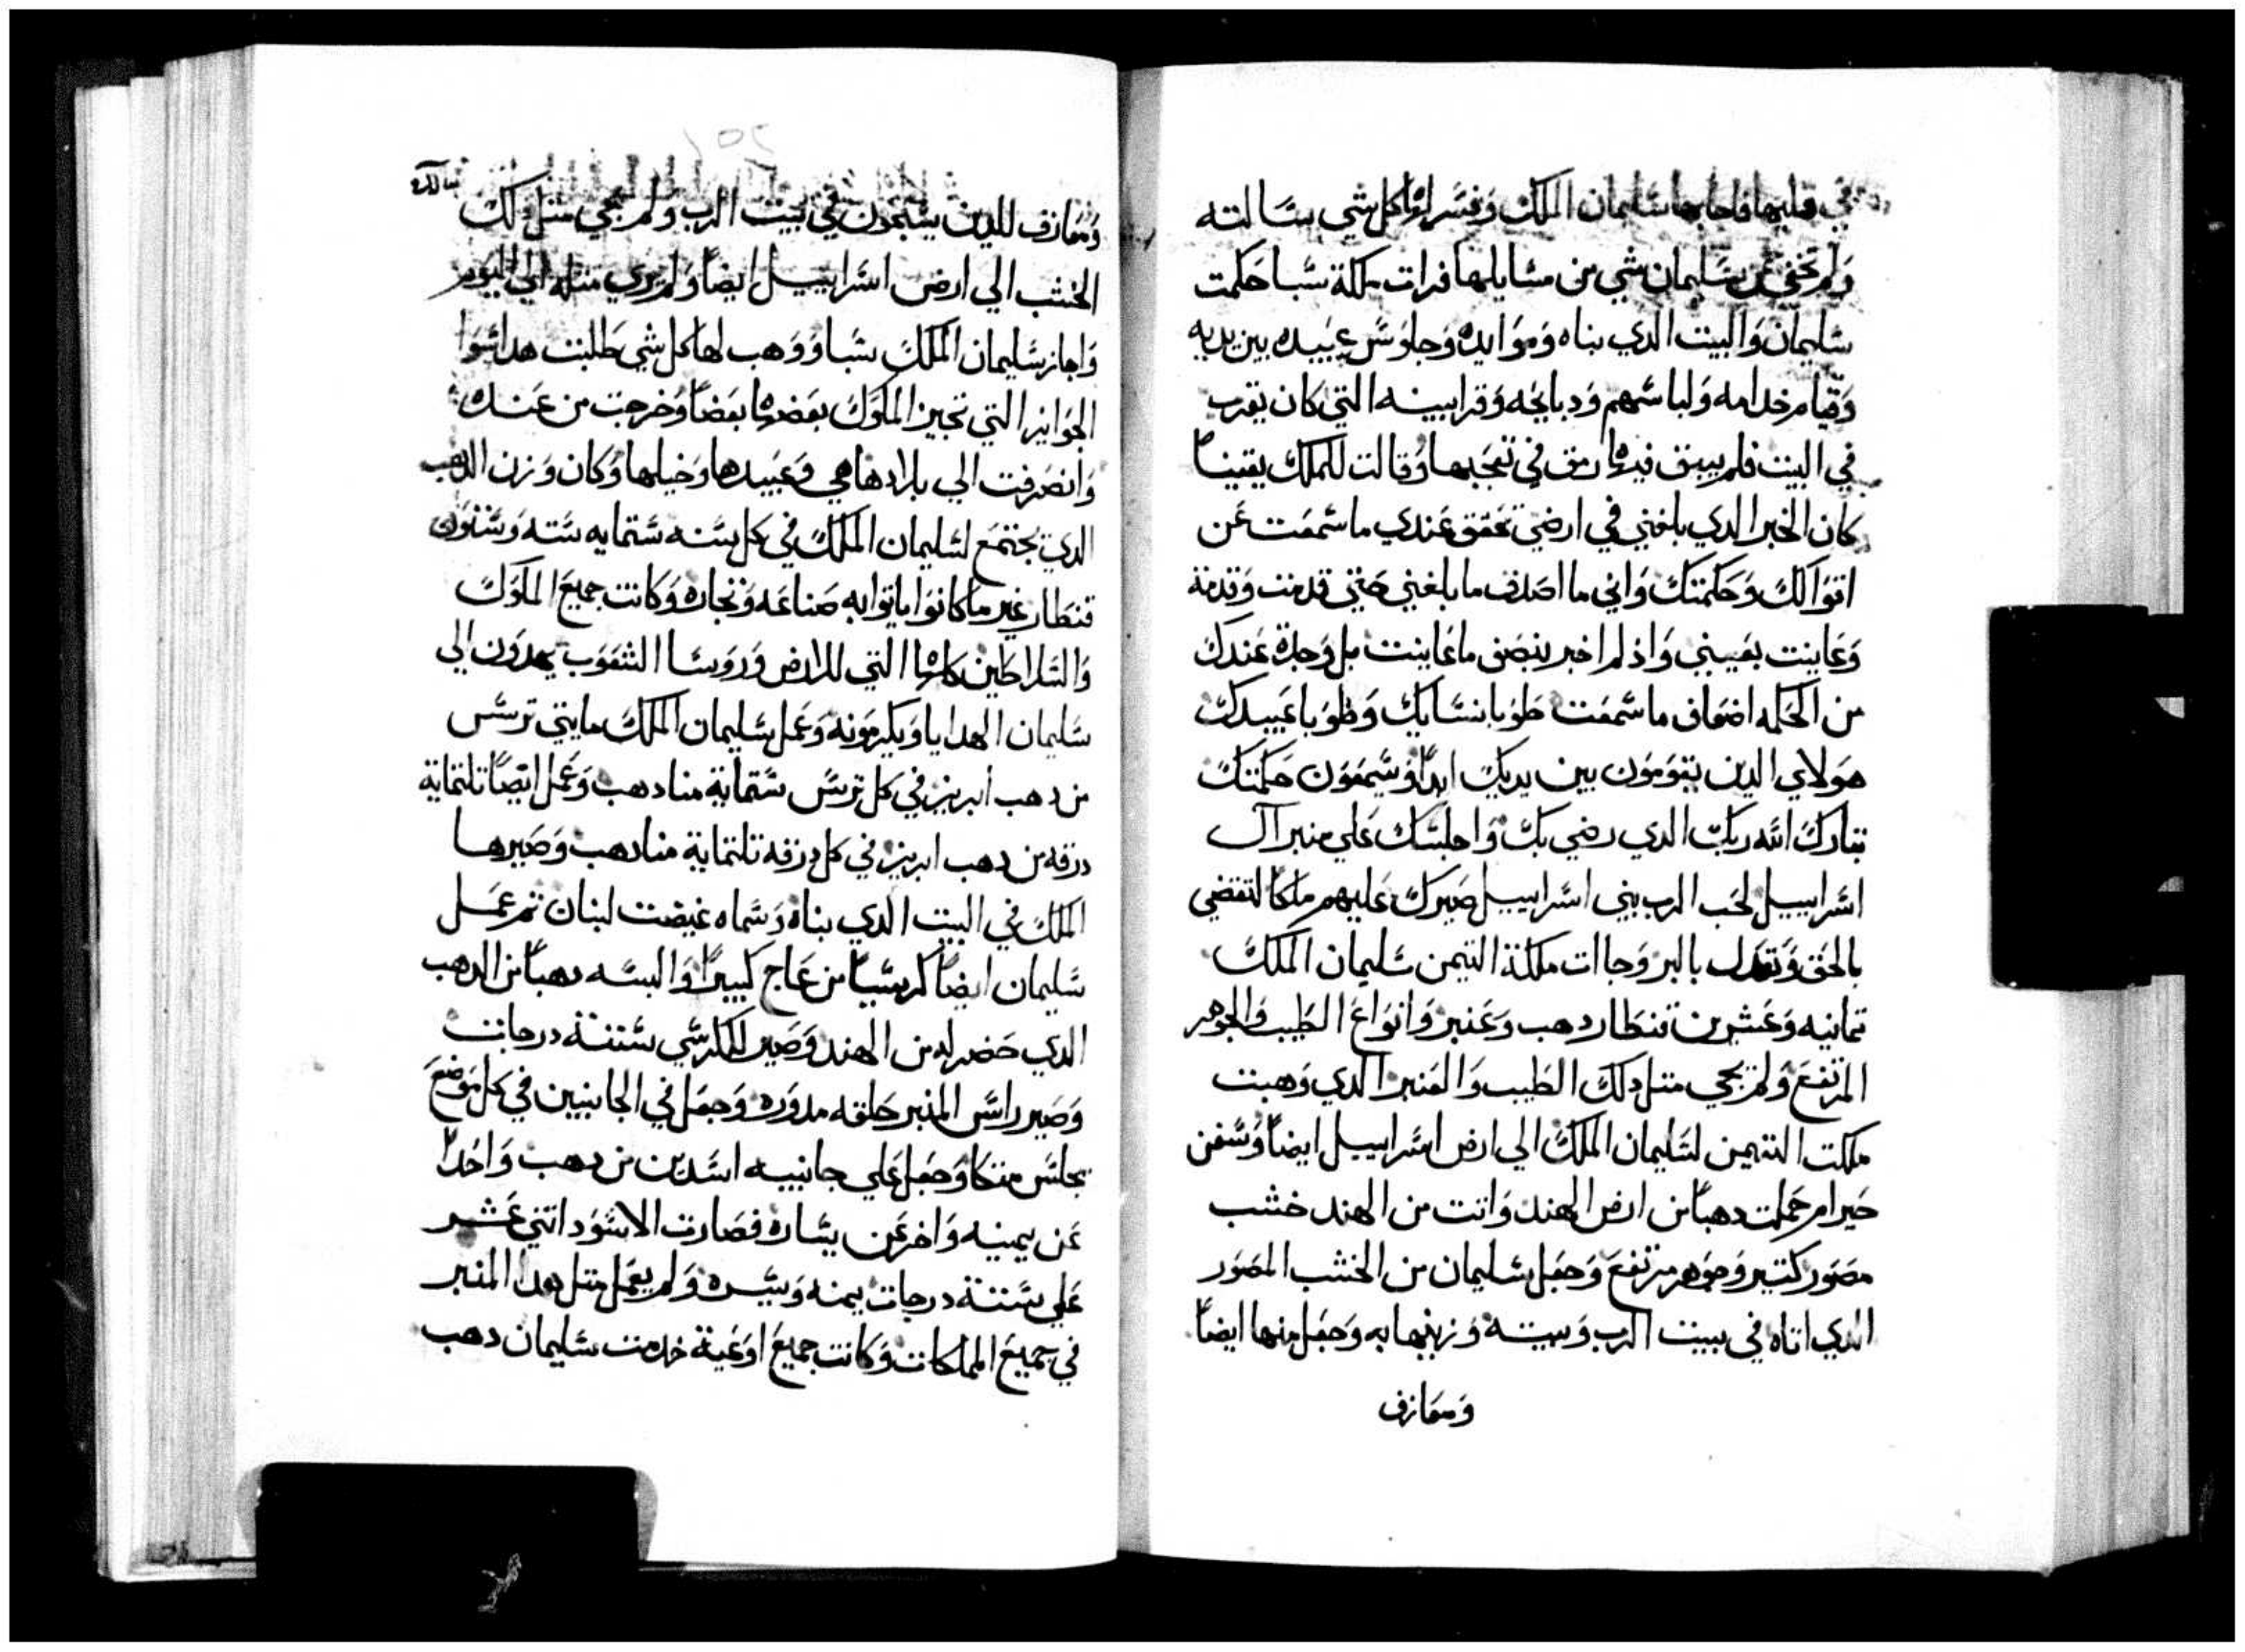 في قلبها فاجابها سليمان الملك وفسر لها كل شي سالته
ولم تخفي عن سليمان شي من مسايلها فرات ملكة سبا حكمت
سليمان والبيت الدي بناه وموايده وجلوس عبيده بين يديه
وقيام خدامه ولباسهم ودبايحه وقرابينه التي كان يقرب
في البيت فلم يبق فيها رمق في تعجبها وقالت للملك يقيناً
كان الخبر الدي بلغني في ارضي تحقق عندي ما سمعت عن
اقوالك وحكمتك واني ما اصدق ما بلغني حتي قدمت وقدمة
وعاينت بعيني واذ لم اخبر ببعض ما عاينت بل وجدة عندك
من الحكمه اضعاف ما سمعت طوبا لنسايك وطوبا عبيدك
هولاي الدين يقومون بين يديك ابداً ويسمعون حكمتك
تبارك الله ربك الدي رضي بك واجلسك علي منبر آل
اسراييل لحب الرب بني اسراييل صيرك عليهم ملكا لتقضي
بالحق وتعدل بالبر وجاات ملكة التيمن سليمان الملك
تمانيه وعشرين قنطار دهب وعنبر وانواع الطيب والجوهر
المرتفع ولم يجي متل دلك الطيب والعنبر الدي وهبت
ملكت التيمن لسليمان الملك الي ارض اسراييل ايضاً وسفن
حيرام حملت دهباً من ارض الهند واتت من الهند خشب
مصور كتير وجوهر مرتفع وجعل سليمان من الخشب المصور
الدي اتاه في بيت الرب وبيته وزينها به وجعل منها ايضاً
ومعازف
ومعازف للدين يسبحون في بيت الرب ولم يجي متل دلك
الخشب الي ارض اسراييل ايضاً ولم يري متله الي اليوم
واجاز سليمان الملك سبا ووهب لها كل شي طلبت هدا سوا
الجوايز التي تجيز الملوك بعضها بعضاً وخرجت من عنده
وانصرفت الي بلادها هي وعبيدها وخيلها وكان وزن الدهب
الدي يجتمع لسليمان الملك في كل سنه ستمايه سته وستون
قنطار غير ما كانوا ياتوا به صناعه وتجاره وكانت جميع الملوك
والسلاطين كلها التي للارض وروسا الشعوب يهدون الي
سليمان الهدايا ويكرمونه وعمل سليمان الملك مايتي ترس
من دهب ابريز في كل ترس ستماية منا دهب وعمل ايضاً تلتماية
درقه من دهب ابريز في كل درقه تلتماية منا دهب وصيرها
الملك في البيت الدي بناه وسماه غيضت لبنان تم عمل
سليمان ايضاً كرسياً من عاج كبيراً والبسه دهباً من الدهب
الدي حضر له من الهند وصير للكرسي ستة درجات
وصير راس المنبر حلقه مدوره وجعل في الجانبين في كل موضع
مجلس متكا وجعل علي جانبيه اسدين من دهب واحداً
عن يمينه واخر عن يساره فصارت الاسود اتني عشر
علي ستة درجات يمنه ويسره ولم يعمل متل هدا المنبر
في جميع المملكات وكانت جميع اوعية خدمت سليمان دهب